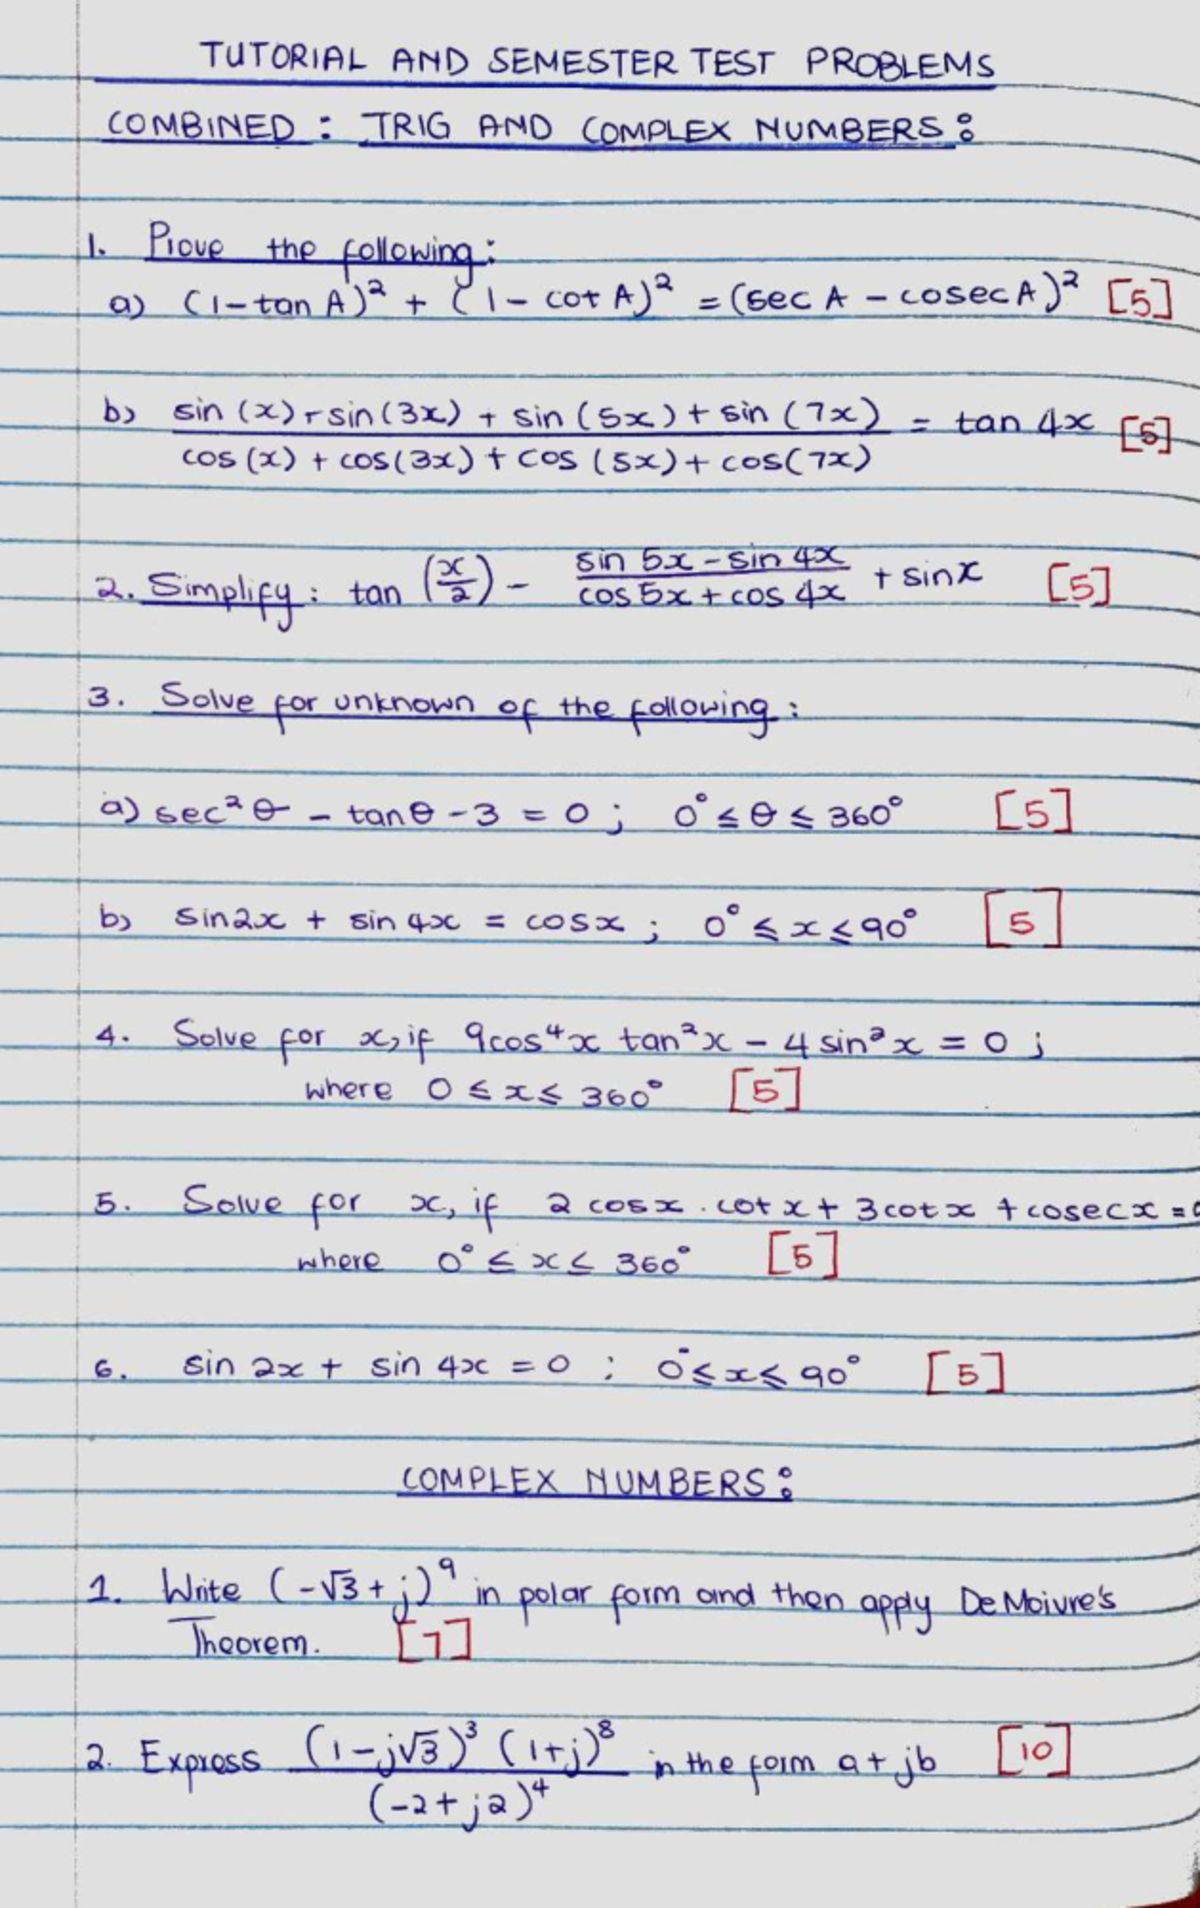 TUTORIAL AND SEMESTER TEST PROBLEMS
COMBINED : TRIG AND COMPLEX NUMBERS :
1. Prove the following :
a) (1 - tan A)² + (1 - cot A)² = (sec A - cosec A)² [5]
b) sin (x) + sin (3x) + sin (5x) + sin (7x) / cos (x) + cos (3x) + cos (5x) + cos (7x) = tan 4x [5]
2. Simplify : tan (x/2) - sin 5x - sin 4x / cos 5x + cos 4x + sin x [5]
3. Solve for unknown of the following :
a) sec² θ - tan θ - 3 = 0 ; 0° ≤ θ ≤ 360° [5]
b) sin2x + sin 4x = cosx ; 0° ≤ x ≤ 90° [5]
4. Solve for x, if 9cos⁴x tan²x - 4 sin²x = 0 ;
where 0 ≤ x ≤ 360° [5]
5. Solve for x, if 2 cosx . cot x + 3 cot x + cosec x =
where 0° ≤ x ≤ 360° [5]
6. sin 2x + sin 4x = 0 ; 0° ≤ x ≤ 90° [5]
COMPLEX NUMBERS :
1. Write (-√3 + j)⁹ in polar form and then apply De Moivre's
Theorem. [7]
2. Express (1 - j√3)³ (1 + j)⁸ / (-2 + j2)⁴ in the form a + jb [10]